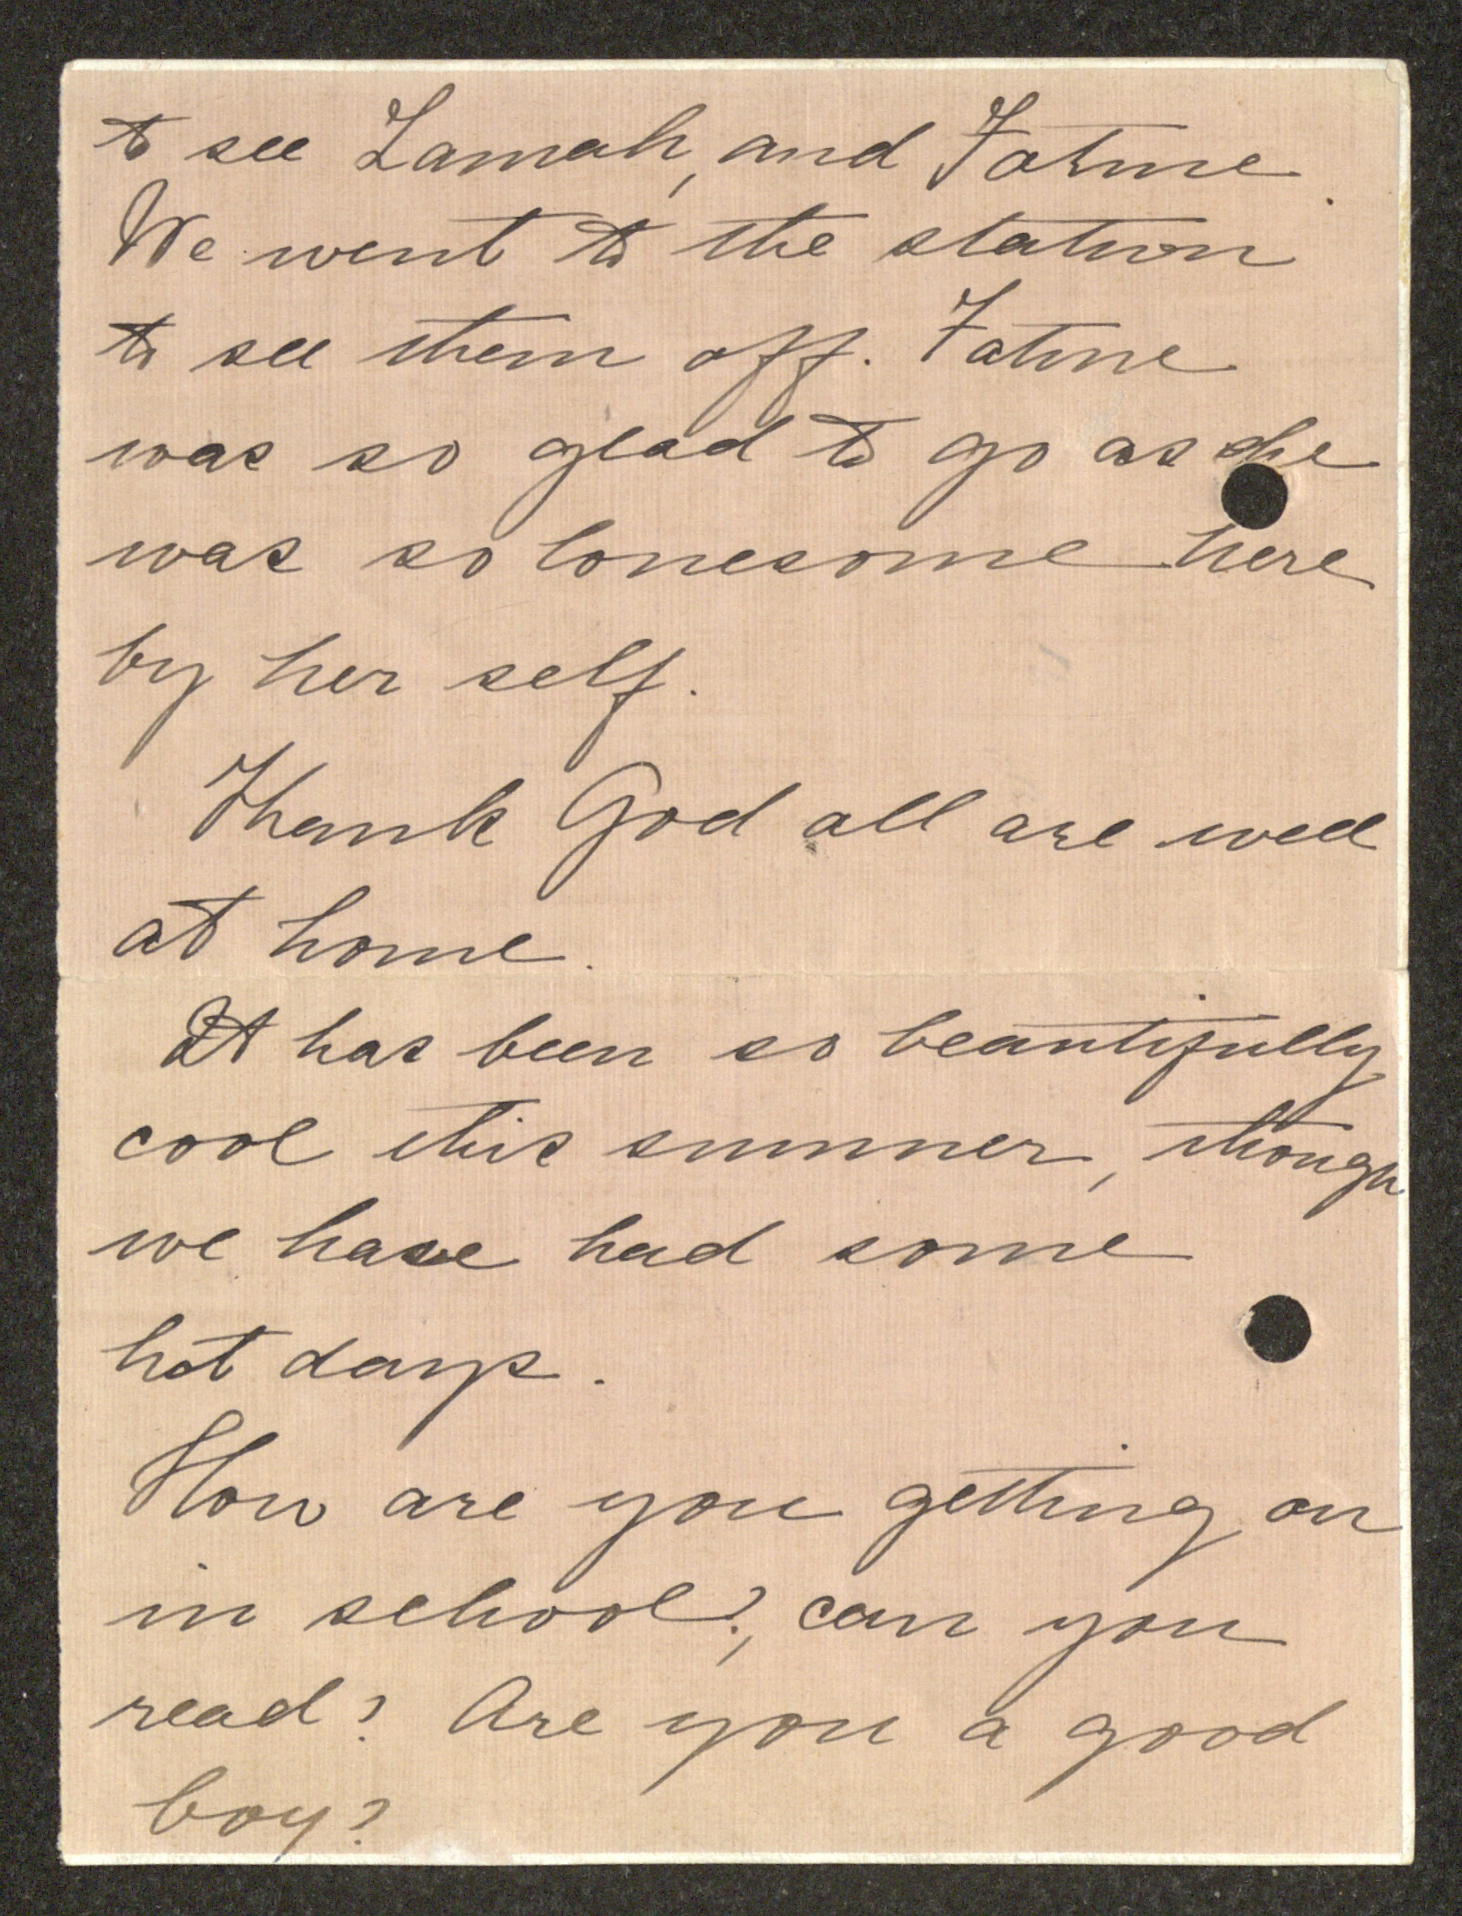 to see Zamah, and Fatme.
We went to the station
to see them off. Fatme
was so glad to go as she
was so lonesome here
by her self.
Thank God all are well
at home.
It has been so beautifully
cool this summer, though
we have had some
hot days.
How are you getting on
in school?, can you
read? Are you a good
boy?